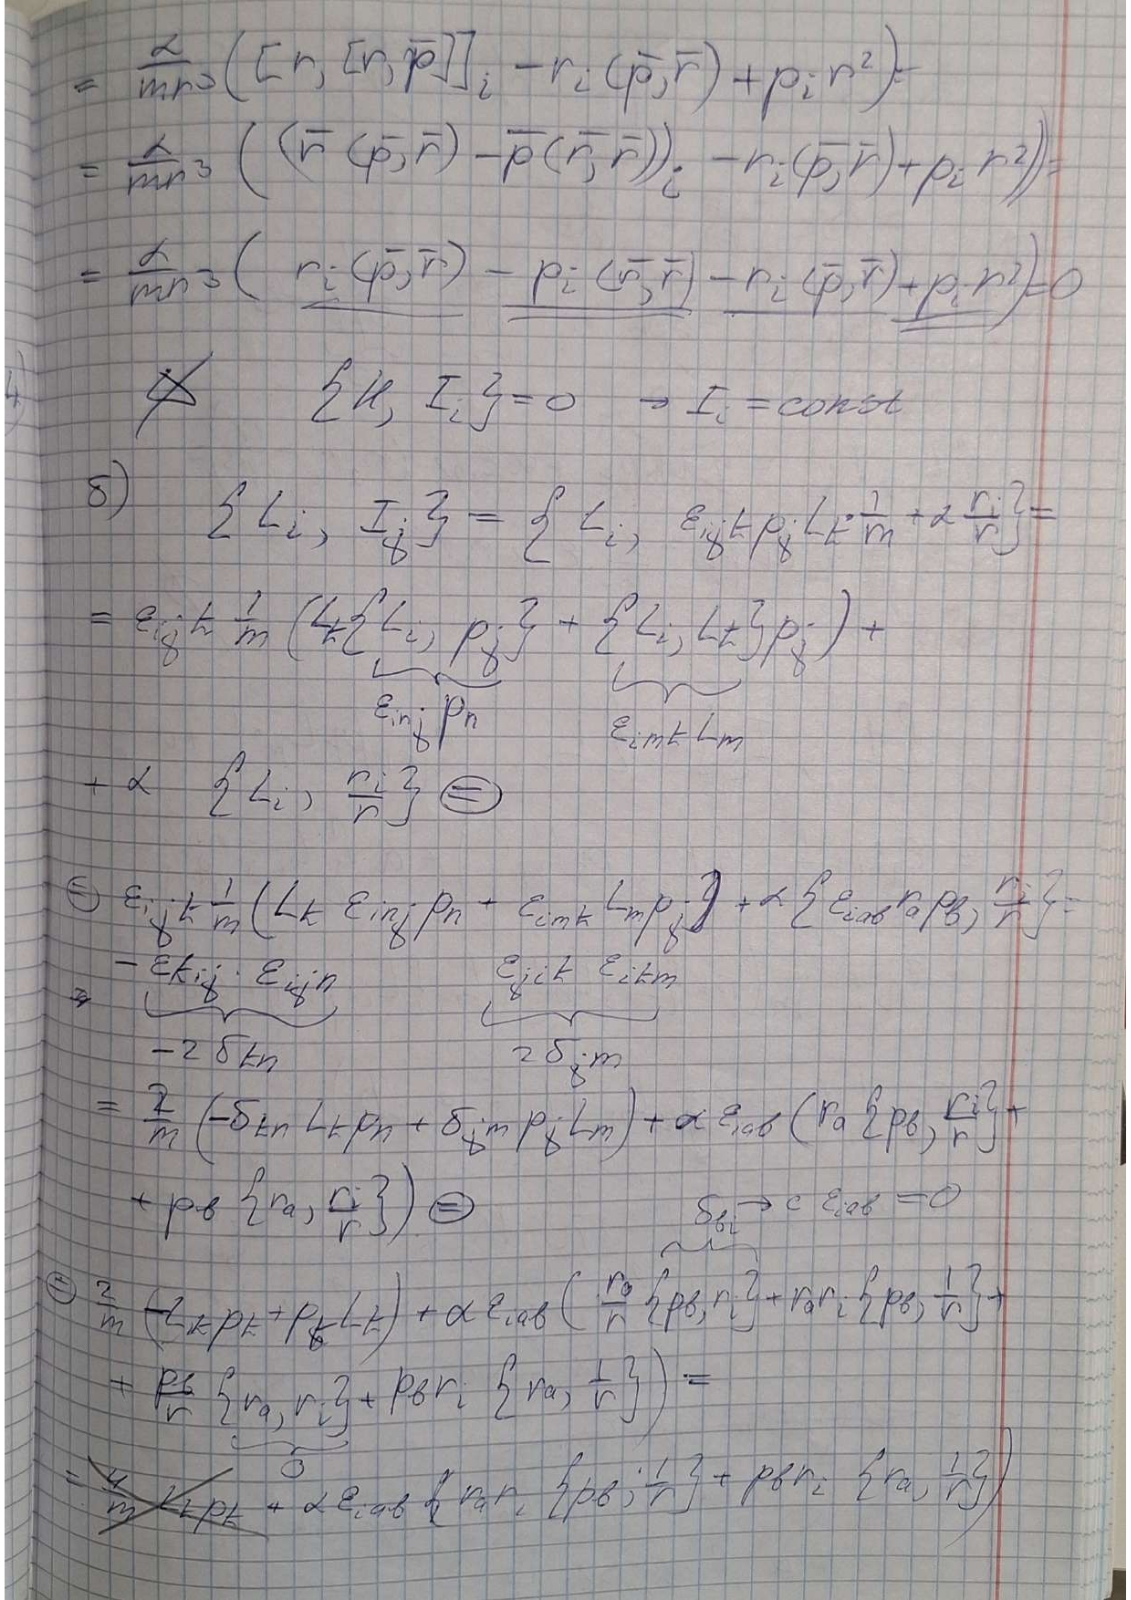 = α/(mr³) ([r, [r, p̄]]_i − r_i (p̄, r̄) + p_i r²) =
= α/(mr³) ((r̄ (p̄, r̄) − p̄ (r̄, r̄))_i − r_i (p̄, r̄) + p_i r²)) =
= α/(mr³) ( r_i (p̄, r̄) − p_i (r̄, r̄) − r_i (p̄, r̄) + p_i r²) = 0
{H, I_i} = 0 → I_i = const
б) {L_i, I_j} = { L_i, ε_ijk p_j L_k 1/m + α r_i/r } =
= ε_ijk 1/m (L_k {L_i, p_j} + {L_i, L_k} p_j) +
ε_inj p_n ε_imk L_m
+ α {L_i, r_i/r} ⊜
⊜ ε_ijk 1/m (L_k ε_inj p_n + ε_imk L_m p_j) + α {ε_iab r_a p_b, r_i/r} =
− ε_kij · ε_ijn ε_jik ε_ikm
−2 δ_kn 2 δ_jm
= 2/m (−δ_kn L_k p_n + δ_jm p_j L_m) + α ε_iab (r_a {p_b, r_i/r} +
+ p_b {r_a, r_i/r}) ⊜ δ_bi → с ε_iab = 0
⊜ 2/m (−L_k p_k + p_k L_k) + α ε_iab ( r_a/r {p_b, r_i} + r_a r_i {p_b, 1/r} +
+ p_b/r {r_a, r_i} + p_b r_i {r_a, 1/r}) =
0
= + α ε_iab { r_a r_i {p_b, 1/r} + p_b r_i {r_a, 1/r})